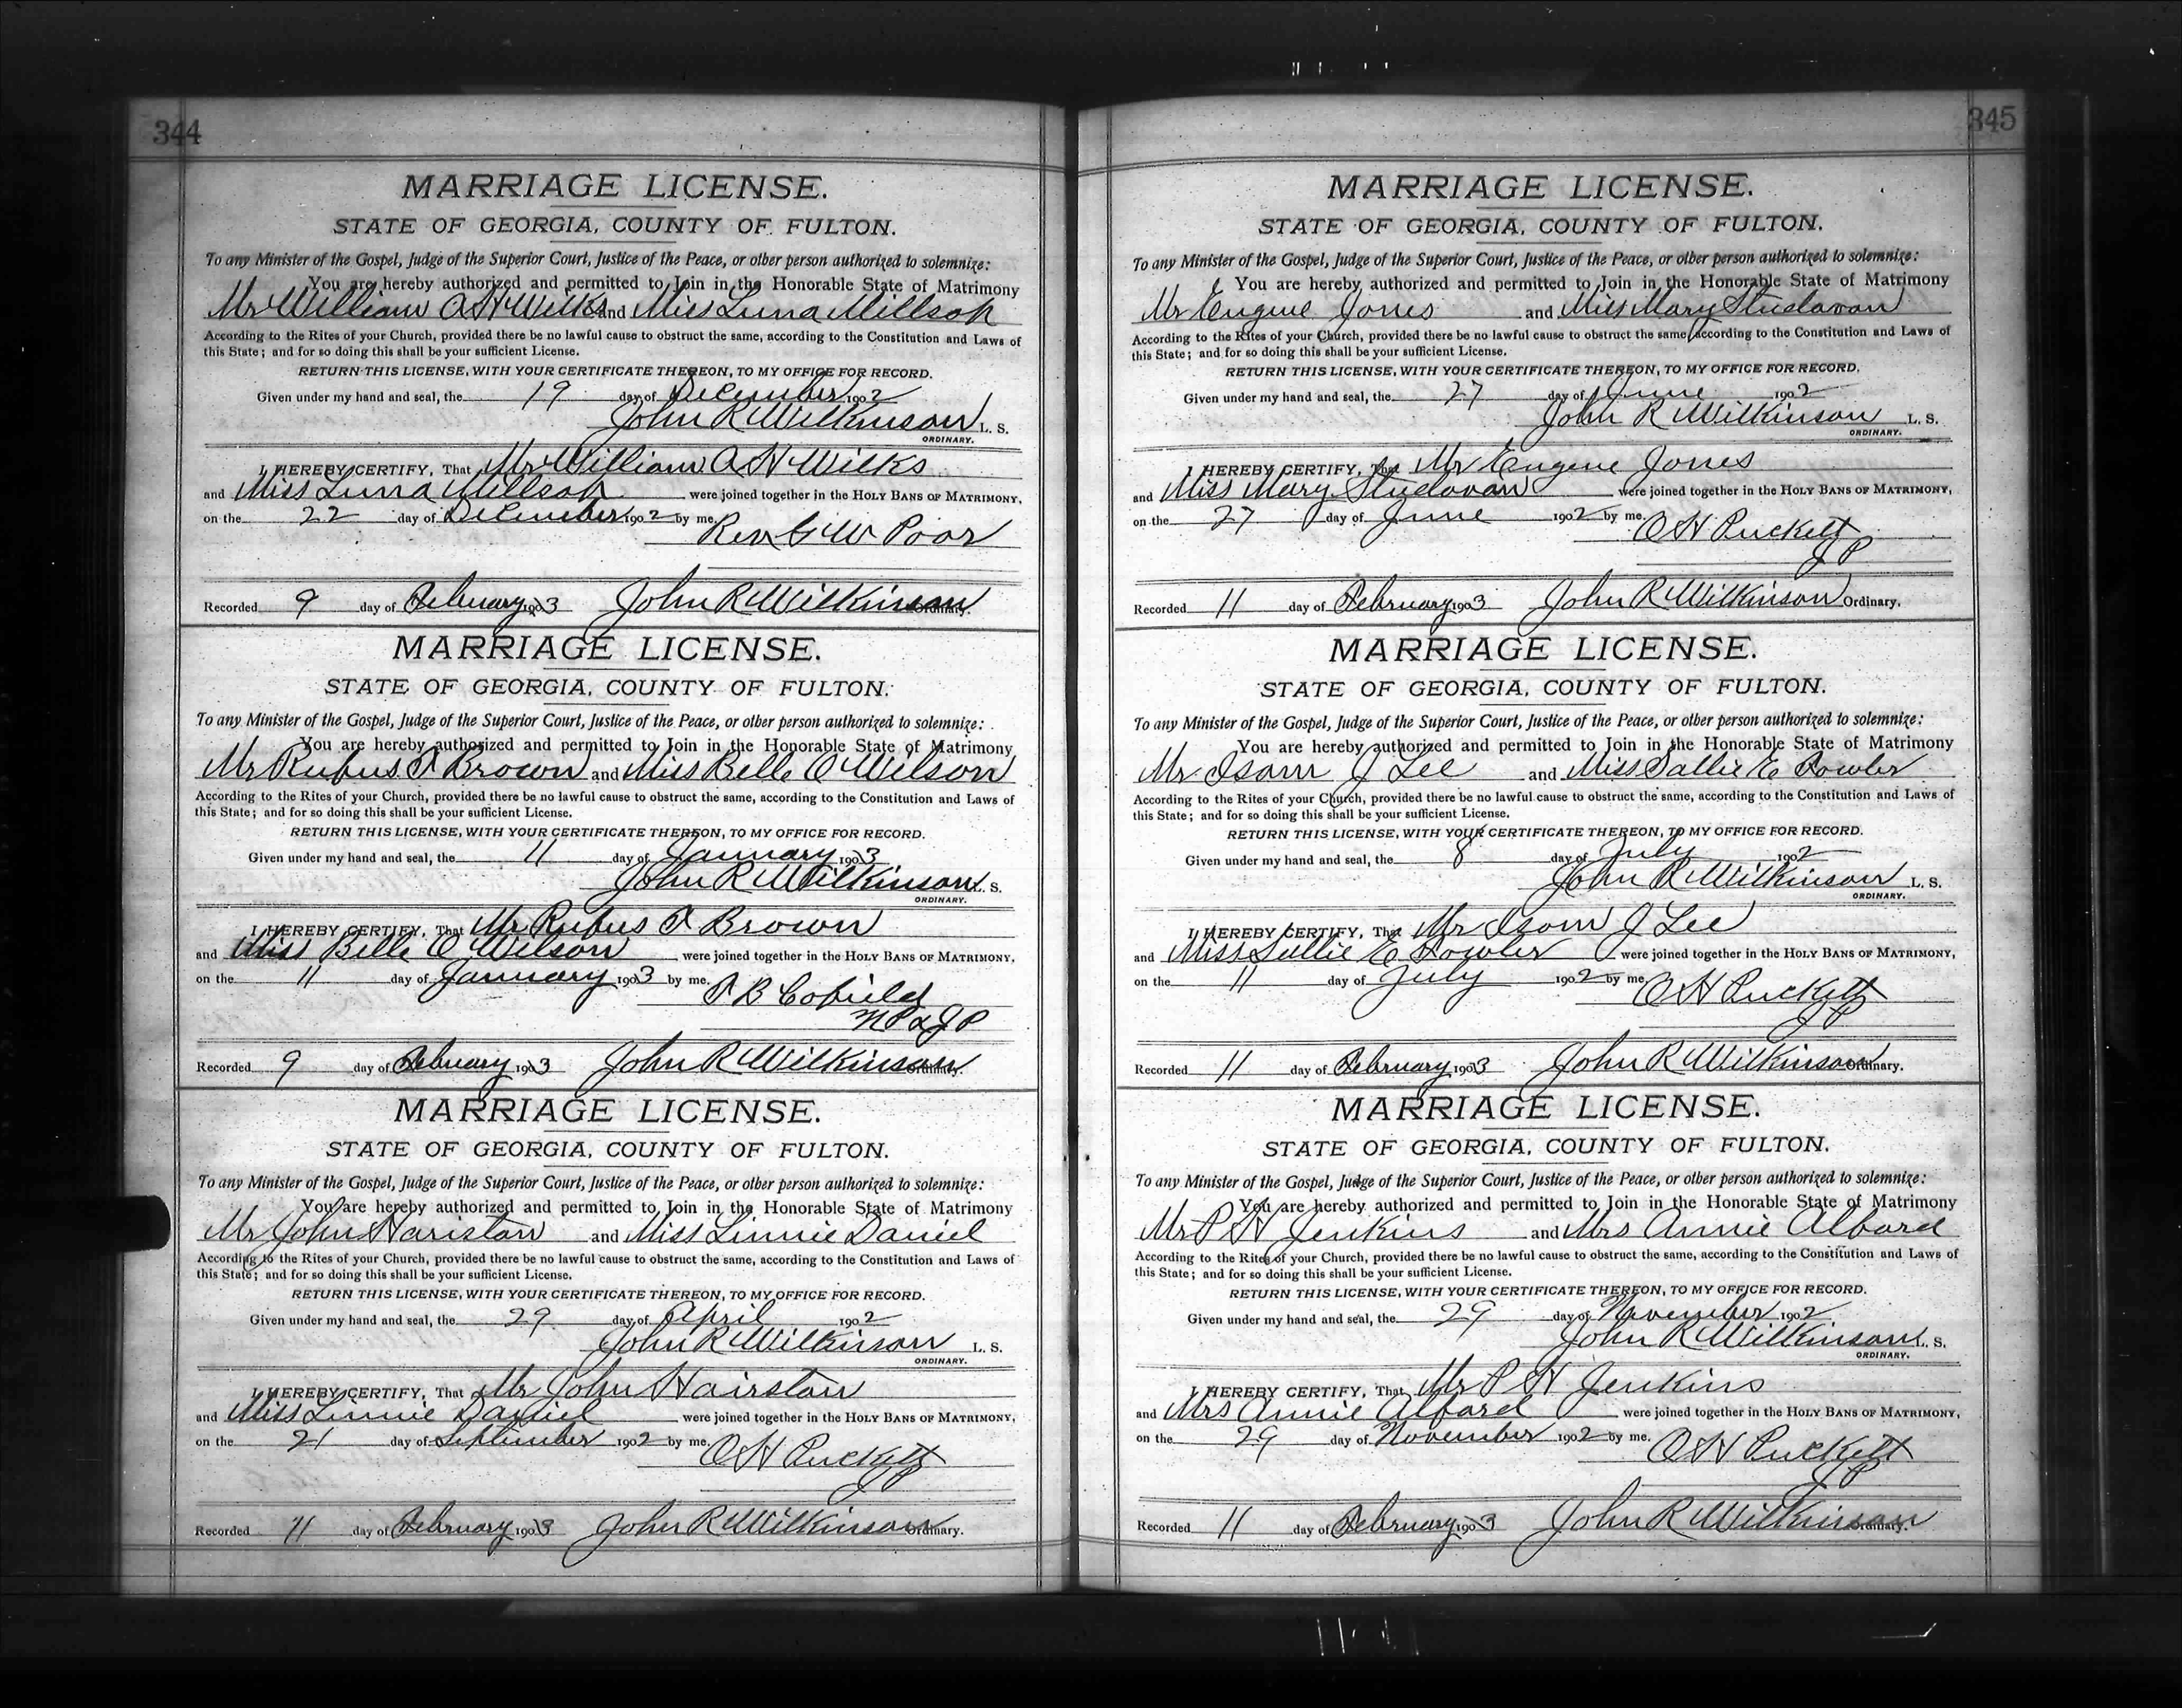 344
MARRIAGE LICENSE.
STATE OF GEORGIA, COUNTY OF FULTON.
To any Minister of the Gospel, Judge of the Superior Court, Justice of the Peace, or other person authorized to solemnize:
You are hereby authorized and permitted to Join in the Honorable State of Matrimony
Mr William A H Wilks and Miss Luna Millsap
According to the Rites of your Church, provided there be no lawful cause to obstruct the same, according to the Constitution and Laws of
this State; and for so doing this shall be your sufficient License.
RETURN THIS LICENSE, WITH YOUR CERTIFICATE THEREON, TO MY OFFICE FOR RECORD.
Given under my hand and seal, the 19 day of December 1902
John R Wilkinson L. S.
ORDINARY.
I HEREBY CERTIFY, That Mr William A H Wilks
and Miss Luna Millsap were joined together in the HOLY BANS OF MATRIMONY,
on the 22 day of December 1902 by me.
Rev G W Poor
Recorded 9 day of February 1903 John R Wilkinson Ordinary.
MARRIAGE LICENSE.
STATE OF GEORGIA, COUNTY OF FULTON.
To any Minister of the Gospel, Judge of the Superior Court, Justice of the Peace, or other person authorized to solemnize:
You are hereby authorized and permitted to Join in the Honorable State of Matrimony
Mr Rufus T Brown and Miss Belle O Wilson
According to the Rites of your Church, provided there be no lawful cause to obstruct the same, according to the Constitution and Laws of
this State; and for so doing this shall be your sufficient License.
RETURN THIS LICENSE, WITH YOUR CERTIFICATE THEREON, TO MY OFFICE FOR RECORD.
Given under my hand and seal, the 11 day of January 1903
John R Wilkinson L. S.
ORDINARY.
I HEREBY CERTIFY, That Mr Rufus T Brown
and Miss Belle O Wilson were joined together in the HOLY BANS OF MATRIMONY,
on the 11 day of January 1903 by me.
T B Cofield
N P & J P
Recorded 9 day of February 1903 John R Wilkinson Ordinary.
MARRIAGE LICENSE.
STATE OF GEORGIA, COUNTY OF FULTON.
To any Minister of the Gospel, Judge of the Superior Court, Justice of the Peace, or other person authorized to solemnize:
You are hereby authorized and permitted to Join in the Honorable State of Matrimony
Mr John Hariston and Miss Linnie Daniel
According to the Rites of your Church, provided there be no lawful cause to obstruct the same, according to the Constitution and Laws of
this State; and for so doing this shall be your sufficient License.
RETURN THIS LICENSE, WITH YOUR CERTIFICATE THEREON, TO MY OFFICE FOR RECORD.
Given under my hand and seal, the 29 day of April 1902
John R Wilkinson L. S.
ORDINARY.
I HEREBY CERTIFY, That Mr John Hairston
and Miss Linnie Daniel were joined together in the HOLY BANS OF MATRIMONY,
on the 21 day of September 1902 by me.
O H Puckett
J P
Recorded 11 day of February 1903 John R Wilkinson Ordinary.
345
MARRIAGE LICENSE.
STATE OF GEORGIA, COUNTY OF FULTON.
To any Minister of the Gospel, Judge of the Superior Court, Justice of the Peace, or other person authorized to solemnize:
You are hereby authorized and permitted to Join in the Honorable State of Matrimony
Mr Eugene Jones and Miss Mary Studavan
According to the Rites of your Church, provided there be no lawful cause to obstruct the same, according to the Constitution and Laws of
this State; and for so doing this shall be your sufficient License.
RETURN THIS LICENSE, WITH YOUR CERTIFICATE THEREON, TO MY OFFICE FOR RECORD.
Given under my hand and seal, the 27 day of June 1902
John R Wilkinson L. S.
ORDINARY.
I HEREBY CERTIFY, That Mr Eugene Jones
and Miss Mary Studavan were joined together in the HOLY BANS OF MATRIMONY,
on the 27 day of June 1902 by me.
O H Puckett
J P
Recorded 11 day of February 1903 John R Wilkinson Ordinary.
MARRIAGE LICENSE.
STATE OF GEORGIA, COUNTY OF FULTON.
To any Minister of the Gospel, Judge of the Superior Court, Justice of the Peace, or other person authorized to solemnize:
You are hereby authorized and permitted to Join in the Honorable State of Matrimony
Mr Isom J Lee and Miss Sallie E Fowler
According to the Rites of your Church, provided there be no lawful cause to obstruct the same, according to the Constitution and Laws of
this State; and for so doing this shall be your sufficient License.
RETURN THIS LICENSE, WITH YOUR CERTIFICATE THEREON, TO MY OFFICE FOR RECORD.
Given under my hand and seal, the 8 day of July 1902
John R Wilkinson L. S.
ORDINARY.
I HEREBY CERTIFY, That Mr Isom J Lee
and Miss Sallie E Fowler were joined together in the HOLY BANS OF MATRIMONY,
on the 11 day of July 1902 by me.
O H Puckett
J P
Recorded 11 day of February 1903 John R Wilkinson Ordinary.
MARRIAGE LICENSE.
STATE OF GEORGIA, COUNTY OF FULTON.
To any Minister of the Gospel, Judge of the Superior Court, Justice of the Peace, or other person authorized to solemnize:
You are hereby authorized and permitted to Join in the Honorable State of Matrimony
Mr P H Jenkins and Mrs Annie Alfard
According to the Rites of your Church, provided there be no lawful cause to obstruct the same, according to the Constitution and Laws of
this State; and for so doing this shall be your sufficient License.
RETURN THIS LICENSE, WITH YOUR CERTIFICATE THEREON, TO MY OFFICE FOR RECORD.
Given under my hand and seal, the 29 day of November 1902
John R Wilkinson L. S.
ORDINARY.
I HEREBY CERTIFY, That Mr P H Jenkins
and Mrs Annie Alfard were joined together in the HOLY BANS OF MATRIMONY,
on the 29 day of November 1902 by me.
O H Puckett
J P
Recorded 11 day of February 1903 John R Wilkinson Ordinary.